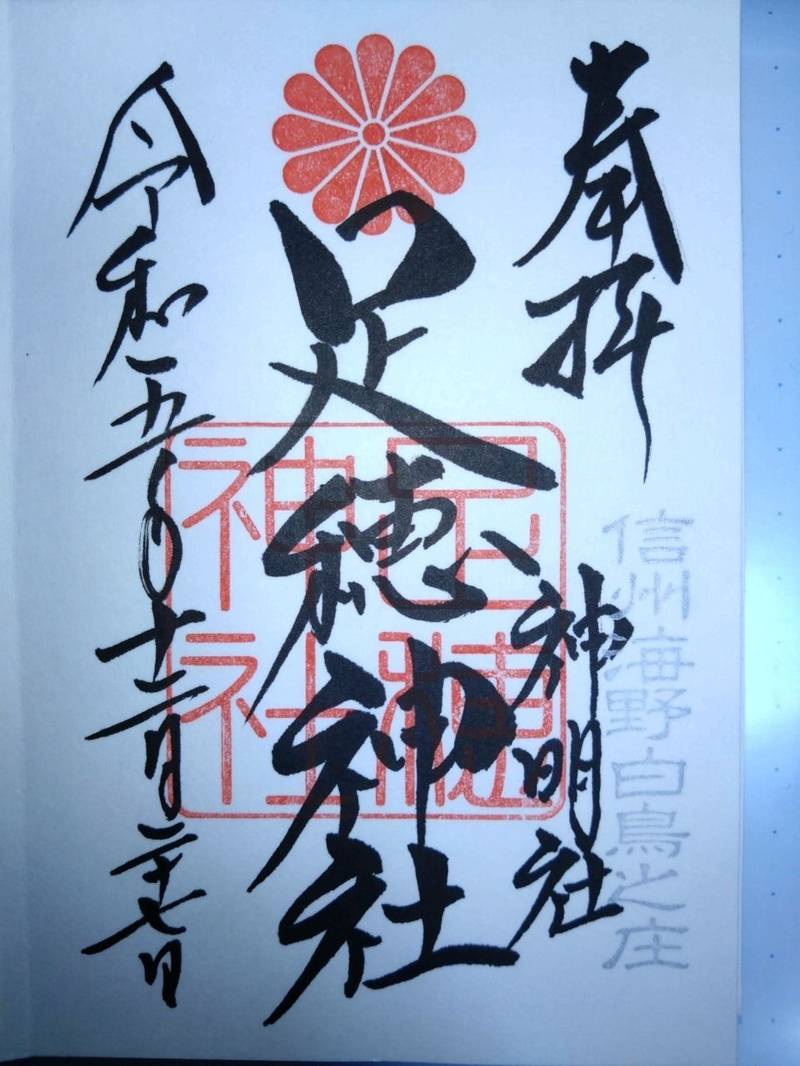 奉拝
信州海野白鳥之庄
神明社
足穂神社
足穂神社
令和五年十二月二十七日